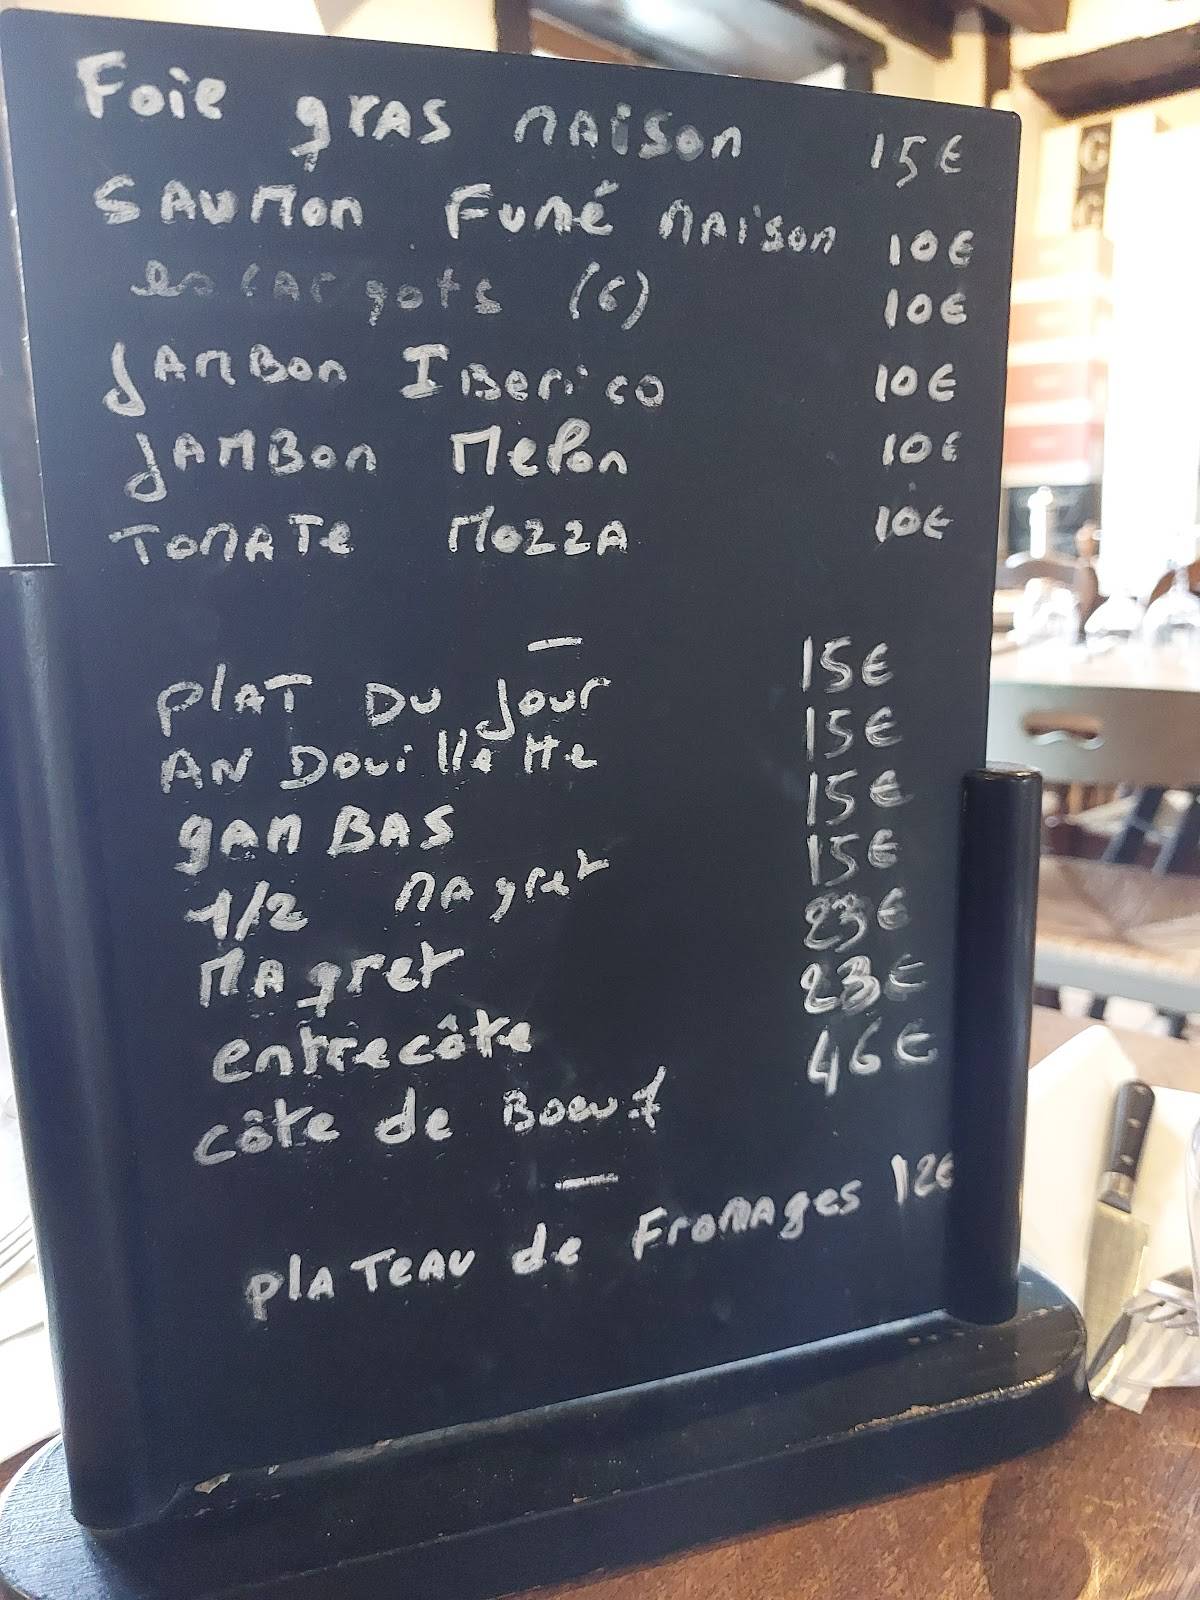 Foie gras maison 15€
Saumon Fumé maison 10€
escargots (6) 10€
Jambon Iberico 10€
Jambon Melon 10€
Tomate Mozza 10€
—
plat du jour 15€
Andouillette 15€
gambas 15€
1/2 magret 15€
Magret 23€
entrecôte 23€
côte de Boeuf 46€
—
plateau de Fromages 12€